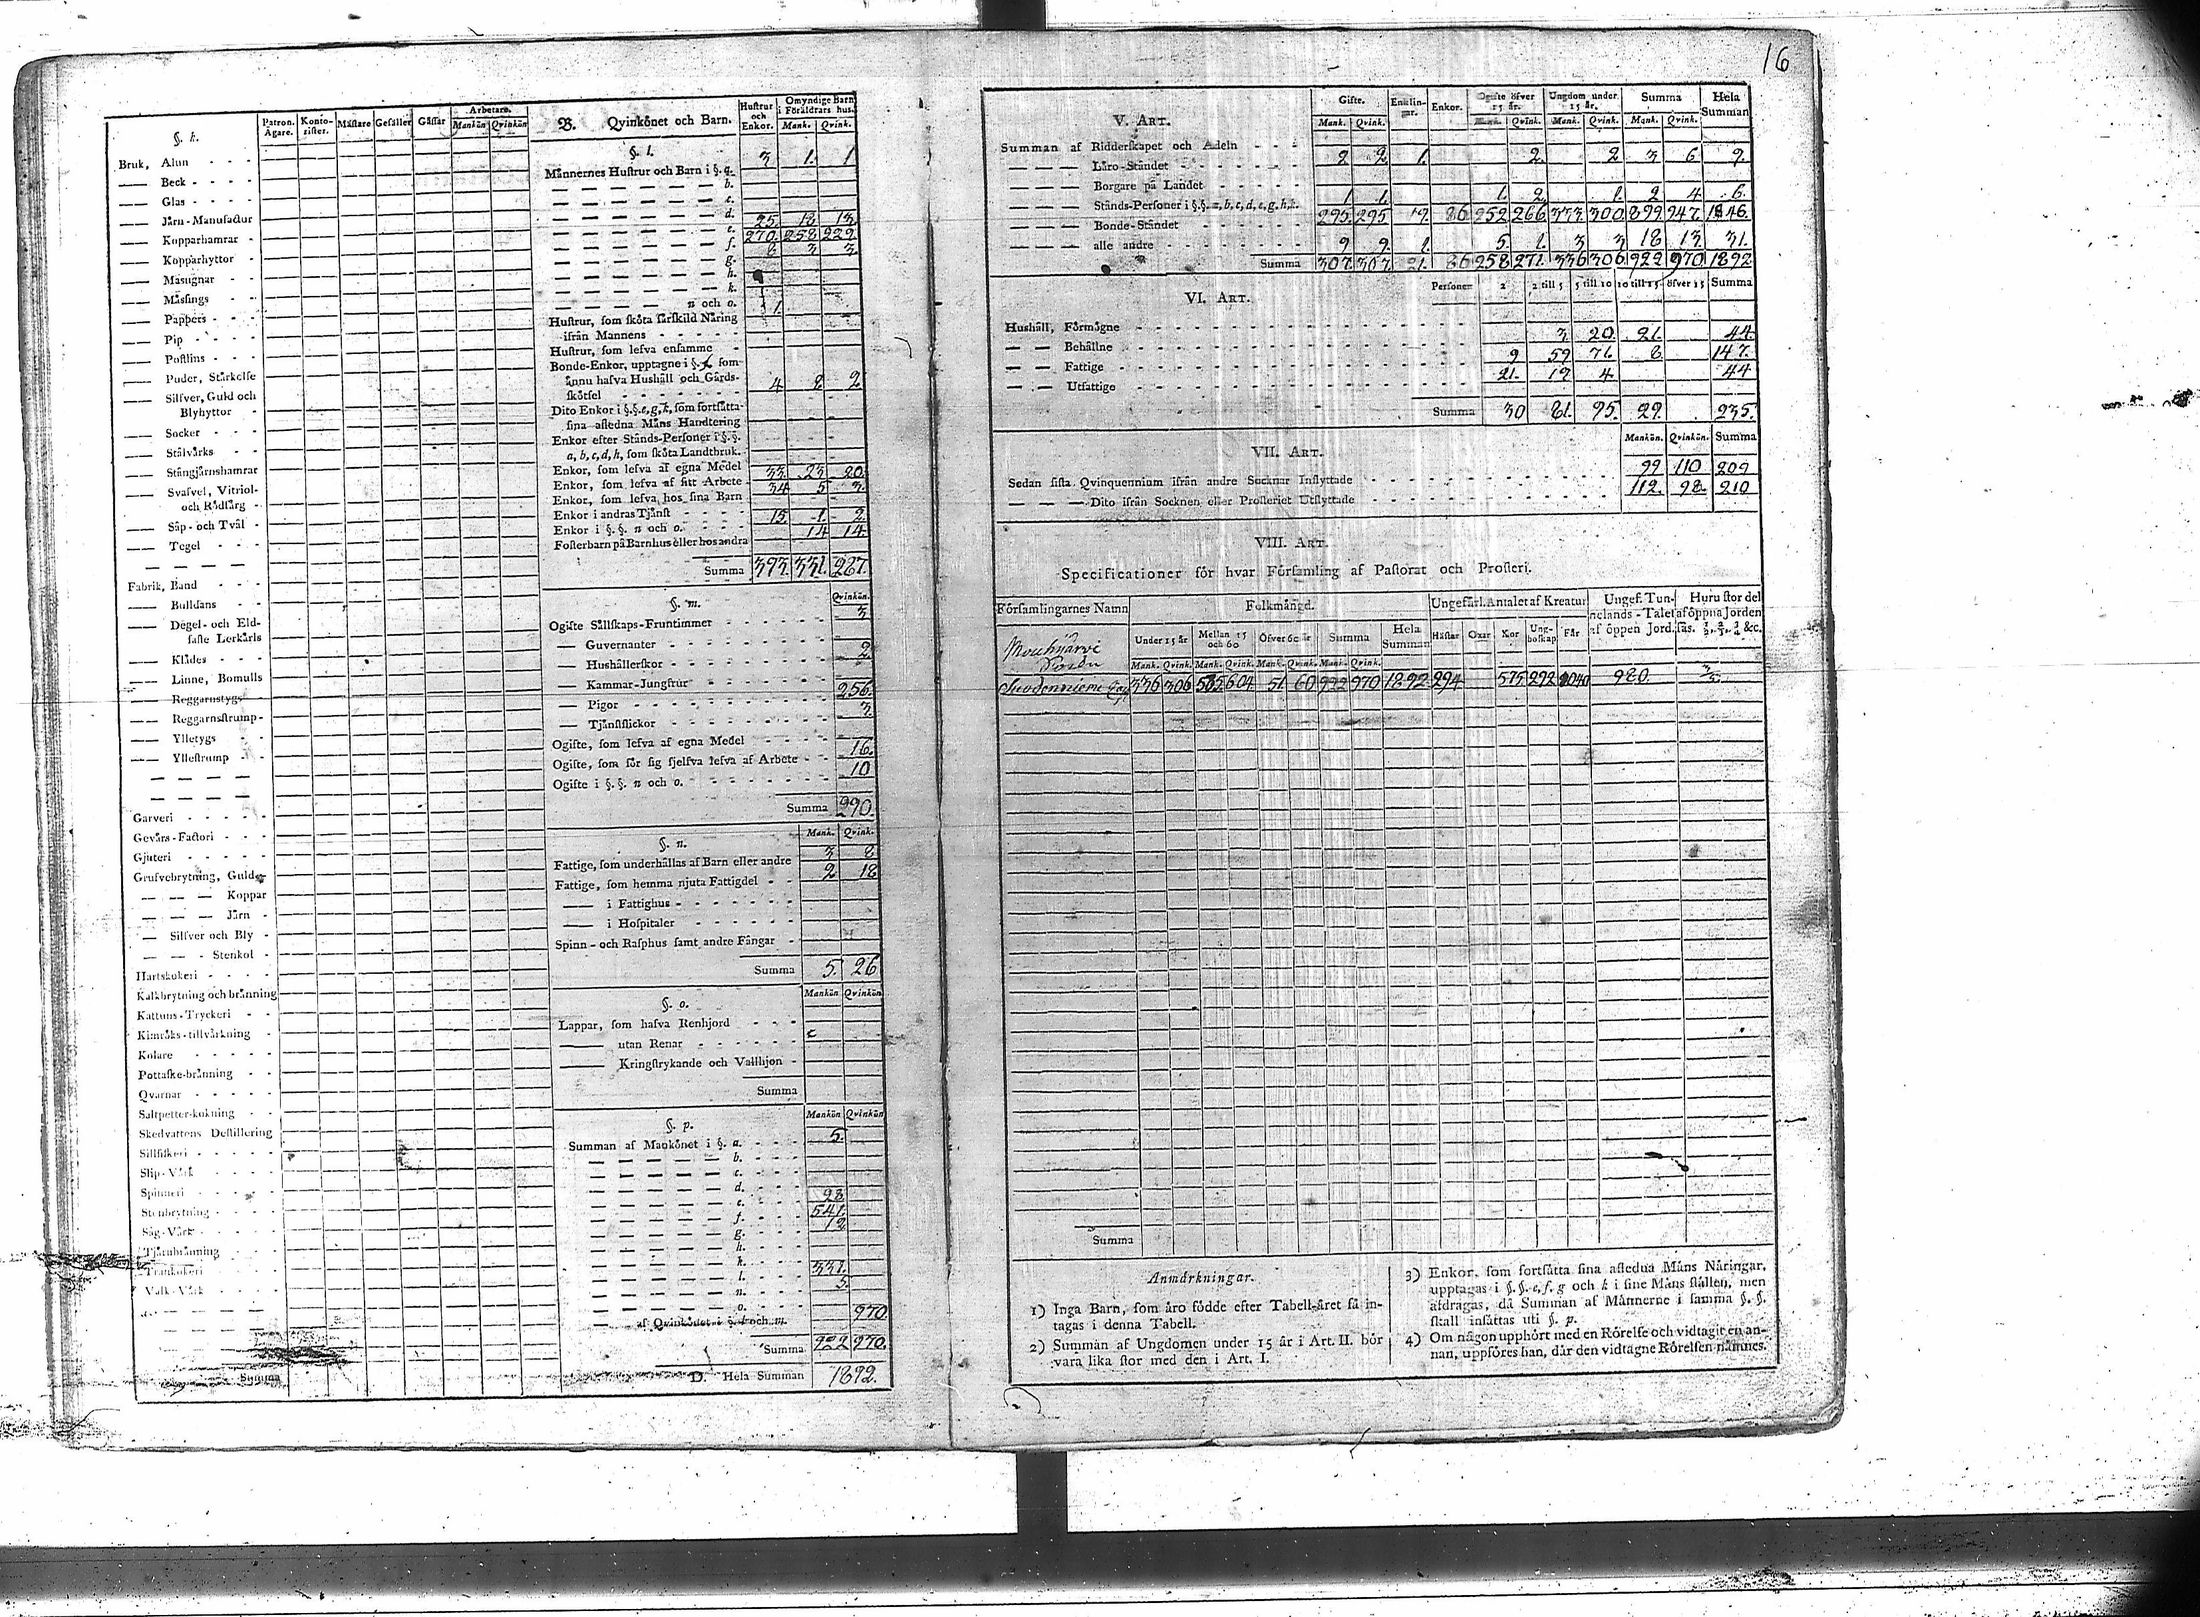 16
§. k.
Patron. Ågare.
Konto-rister.
Måstare
Gesäller
Gåssar
Arbetare.
Mankön Qvinkön
Bruk, Alun
—— Beck
—— Glas
—— Jårn-Manufactur
—— Kopparhamrar
—— Kopparhyttor
—— Masugnar
—— Måssings
—— Pappers
—— Pip
—— Postlins
—— Puder, Stårkelse
—— Silfver, Guld och
Blyhyttor
—— Socker
—— Stålvårks
—— Stångjårnshamrar
—— Svafvel, Vitriol-
och Rödfårg
—— Såp- och Tvål
—— Tegel
Fabrik, Band
—— Bulldans
—— Degel- och Eld-
faste Lerkårls
—— Klådes
—— Linne, Bomulls
—— Reggarnstygs
—— Reggarnsstrump
—— Ylletygs
—— Yllestrump
Garveri
Gevårs-Factori
Gjuteri
Grufvebrytning, Guld
— — — Koppar
— — — Jårn
— Silfver och Bly
— — - Stenkol
Hartskokeri
Kalkbrytning och brånning
Kattuns-Tryckeri
Kimröks-tillvårkning
Kolare
Pottaske-brånning
Qvarnar
Saltpetter-kokning
Skedvattens Destillering
Sillfiskeri
Slip-Vårk
Spinneri
Stenbrytning
Såg-Vårk
Tjårubrånning
Trankokeri
Valk-Vårk
Summa
B. Qvinkönet och Barn.
Hustrur och Enkor.
Omyndige Barn i Föråldrars hus.
Mank. Qvink.
§. l.
Månnernes Hustrur och Barn i §. a. 3 1. 1
b.
c.
d.
e. 25. 18 13.
f. 270. 258 229
g. 8 3 3.
h.
k.
n och o. 1.
Hustrur, som sköta sårskild Nåring
ifrån Mannens
Hustrur, som lefva ensamme
Bonde-Enkor, upptagne i §. f. som
ånnu hafva Hushåll och Gårds-
skötsel 4 8 2
Dito Enkor i §.§. e, g, k, som fortsåtta
sina afledna Måns Handtering
Enkor efter Stånds-Personer i §.§.
a, b, c, d, h, som sköta Landtbruk.
Enkor, som lefva af egna Medel 33. 23 20.
Enkor, som lefva af sitt Arbete 34 5 3.
Enkor, som lefva hos sina Barn
Enkor i andras Tjånst 15. 1. 2
Enkor i §.§. n och o. 14 14.
Fosterbarn på Barnhus eller hos andra
Summa 393. 331. 287.
§. m. Qvinkön.
Ogifte Sållskaps-Fruntimmer 3
— Guvernanter
— Hushållerskor 2.
— Kammar-Jungfrur
— Pigor 256.
— Tjånstflickor 3.
Ogifte, som lefva af egna Medel
Ogifte, som för sig sjelfva lefva af Arbete 16.
Ogifte i §.§. n och o. 10
Summa 290.
Mank. Qvink.
§. n.
Fattige, som underhållas af Barn eller andre 3 8
Fattige, som hemma njuta Fattigdel 2 18
—— i Fattighus
—— i Hospitaler
Spinn- och Rasphus samt andre Fångar
Summa 5. 26
Mankön Qvinkön
§. o.
Lappar, som hafva Renhjord
—— utan Renar
—— Kringstrykande och Vallhjon
Summa
Mankön Qvinkön
§. p.
Summan af Mankönet i §. a. 5.
b.
c.
d.
e. 28
f. 541.
g. 12
h.
k.
l. 331.
n. 5.
o.
— af Qvinkönet i §. l och m. 970.
Summa 922 970.
D. Hela Summan 1892.
V. Art.
Gifte.
Enklin-gar.
Enkor.
Ogifte öfver 15 år.
Ungdom under 15 år.
Summa
Hela Summan
Mank. Qvink. Mank. Qvink. Mank. Qvink. Mank. Qvink.
Summan af Ridderskapet och Adeln 2 2 1. 2. 2 3 6 9.
— — — Låro-Ståndet
— — — Borgare på Landet
— — — Stånds-Personer i §.§. a, b, c, d, e, g, h, k. 1 1. 1. 2 1. 2 4 6.
— — — Bonde-Ståndet 295. 295 19. 86 252 266 333 300 899 947. 1846.
— — — alle andre 9 9. 1. 5. 1. 3 3 18 13. 31.
Summa 307. 307. 21. 86 258 271. 336 306 922 970 1892
VI. Art.
Personer 2 2 till 5 5 till 10 10 till 15 öfver 15 Summa
Hushåll, Förmögne 3 20. 21. 44.
— — Behållne 9 59 71. 8 147.
— — Fattige 21. 19 4 44
— — Utfattige
Summa 30 81. 95. 29. 235.
Mankön. Qvinkön. Summa
VII. Art.
Sedan sista Qvinquennium ifrån andre Socknar Inflyttade 99 110 209
— — Dito ifrån Socknen eller Prosteriet Utflyttade 112. 98. 210
VIII. Art.
Specificationer för hvar Församling af Pastorat och Prosteri.
Församlingarnes Namn
Folkmångd.
Ungefärl. Antalet af Kreatur
Ungef. Tun-nelands-Talet af öppen Jord.
Huru stor del af öppna Jorden sås. ½, ⅔, ¾ &c.
Under 15 år
Mellan 15 och 60
Öfver 60 år
Summa
Hela Summan
Håstar
Oxar
Kor
Ung-boskap
Får
Mank. Qvink. Mank. Qvink. Mank. Qvink. Mank. Qvink.
Mouhijärvi
336 306 535 604 51 60 922 970 1892 294 575 292 1040 980.
Summa
Anmårkningar.
1) Inga Barn, som åro födde efter Tabell-året få in-
tagas i denna Tabell.
2) Summan af Ungdomen under 15 år i Art. II. bör
vara lika stor med den i Art. I.
3) Enkor, som fortsåtta sina afledna Måns Nåringar,
upptagas i §.§. e, f, g och k i sine Måns stållen, men
afdragas, då Summan af Månnerne i samma §.§.
skall insåttas uti §. p.
4) Om någon upphört med en Rörelse och vidtagit en an-
nan, uppföres han, dår den vidtagne Rörelsen nåmnes.